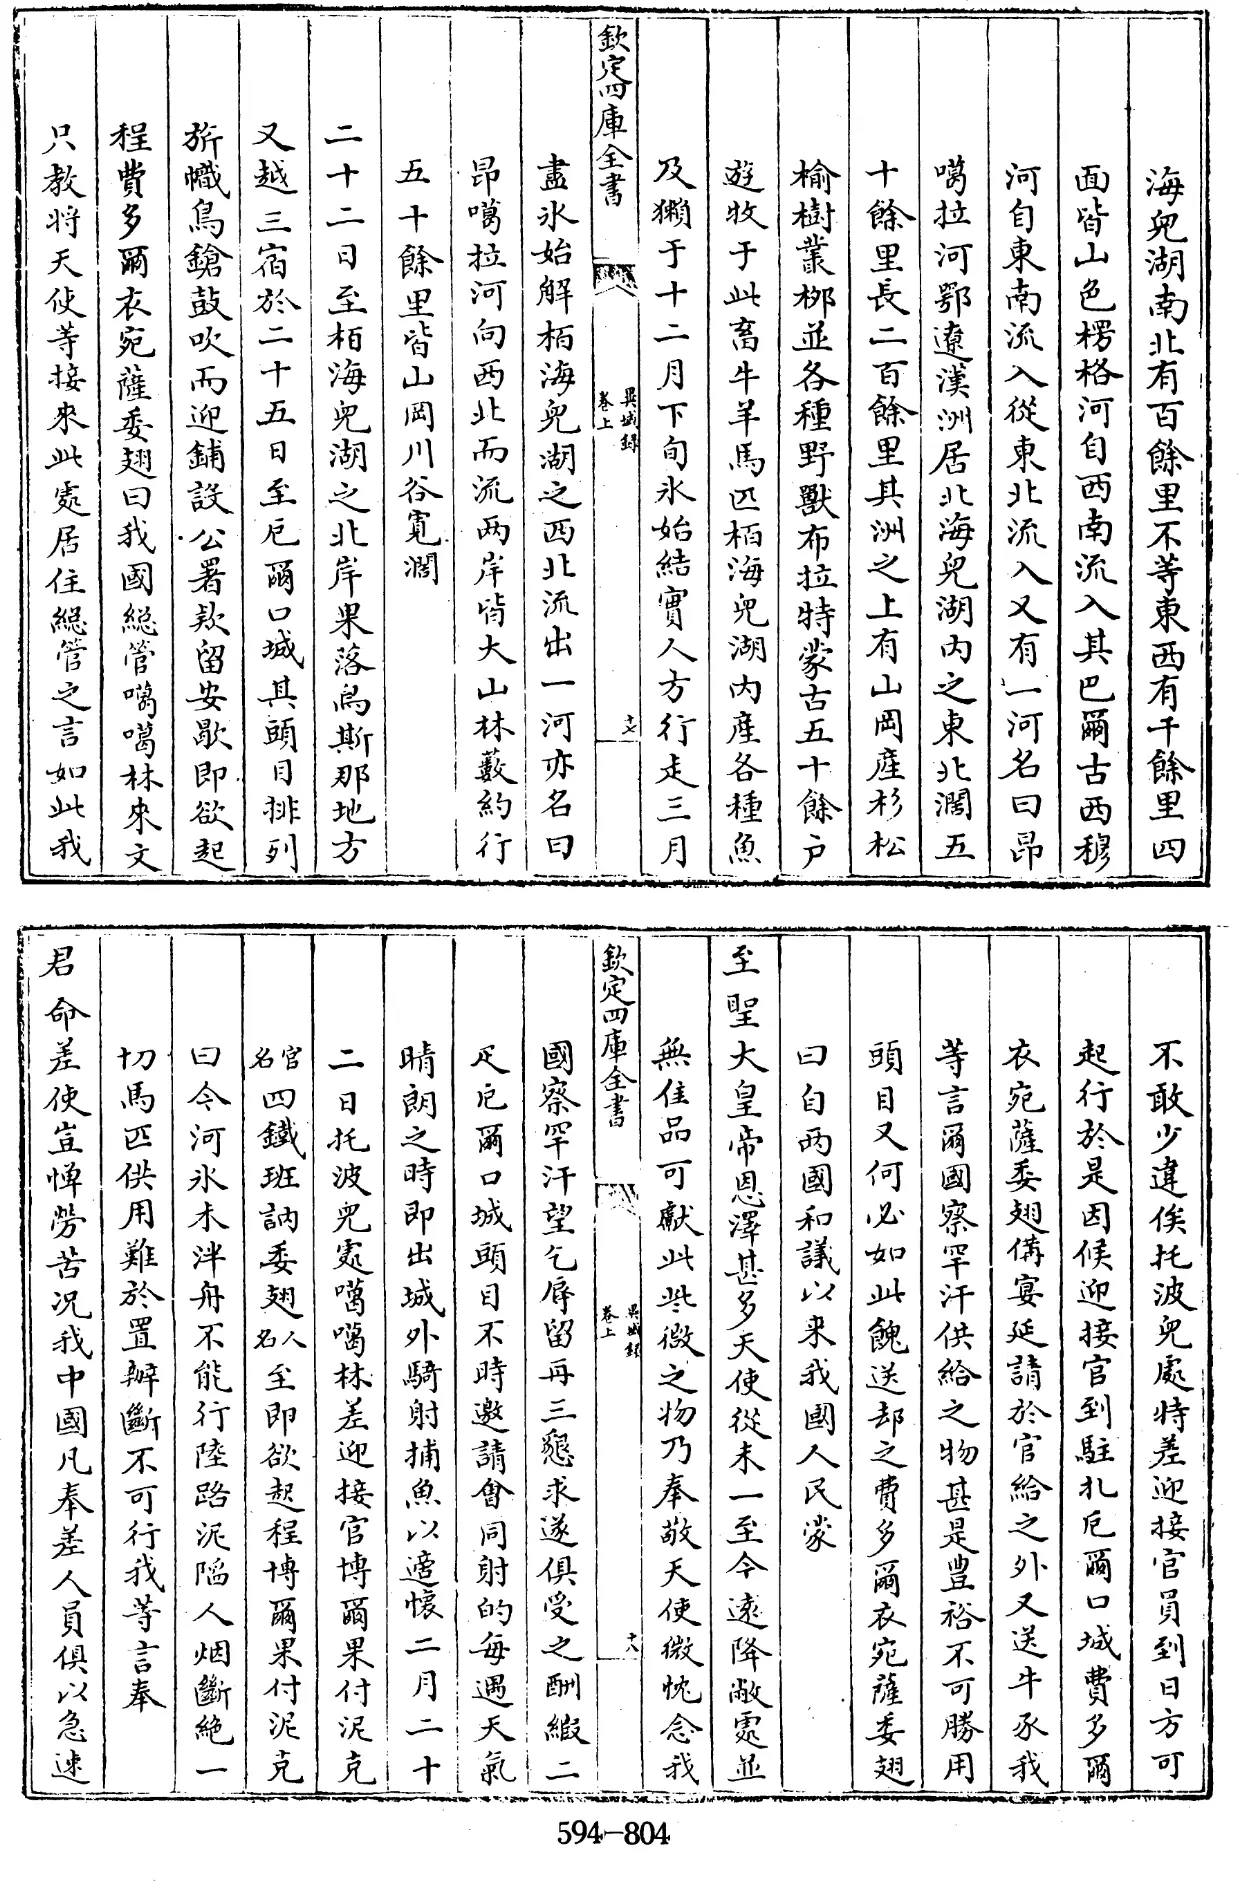 海兒湖南北有百餘里不等東西有千餘里四
面皆山色楞格河自西南流入其巴爾古西穆
河自東南流入從東北流入又有一河名曰昂
噶拉河鄂遼漢洲居北海兒湖内之東北濶五
十餘里長二百餘里其洲之上有山岡産杉松
榆樹叢栁並各種野獸布拉特蒙古五十餘户
遊牧于此畜牛羊馬匹栢海兒湖内産各種魚
及獺于十二月下旬氷始結實人方行走三月
欽定四庫全書
異域録
卷上
十七
盡氷始解栢海兒湖之西北流出一河亦名曰
昂噶拉河向西北而流两岸皆大山林藪約行
五十餘里皆山岡川谷寛濶
二十二日至栢海兒湖之北岸果落烏斯那地方
又越三宿於二十五日至厄爾口城其頭目排列
旂幟鳥鎗鼓吹而迎鋪設公署欵留安歇即欲起
程費多爾衣宛薩委翅曰我國總管噶噶林來文
只教将天使等接來此處居住總管之言如此我
不敢少違俟托波兒處特差迎接官員到日方可
起行於是因候迎接官到駐札厄爾口城費多爾
衣宛薩委翅備宴延請於官給之外又送牛豕我
等言爾國察罕汗供給之物甚是豐裕不可勝用
頭目又何必如此餽送却之費多爾衣宛薩委翅
曰自两國和議以来我國人民蒙
至聖大皇帝恩澤甚多天使從未一至今逺降敝處並
無佳品可獻此些微之物乃奉敬天使微忱念我
欽定四庫全書
異域録
卷上
十八
國察罕汗望乞辱留再三懇求遂俱受之酬緞二
疋厄爾口城頭目不時邀請會同射的每遇天氣
晴朗之時即出城外騎射捕魚以適懐二月二十
二日托波兒處噶噶林差迎接官博爾果付泥克
官名四鐵班訥委翅人名至即欲起程博爾果付泥克
曰今河氷未泮舟不能行陸路泥陷人烟斷絶一
切馬匹供用難於置辦斷不可行我等言奉
君命差使豈憚勞苦况我中國凡奉差人員俱以急速
594-804